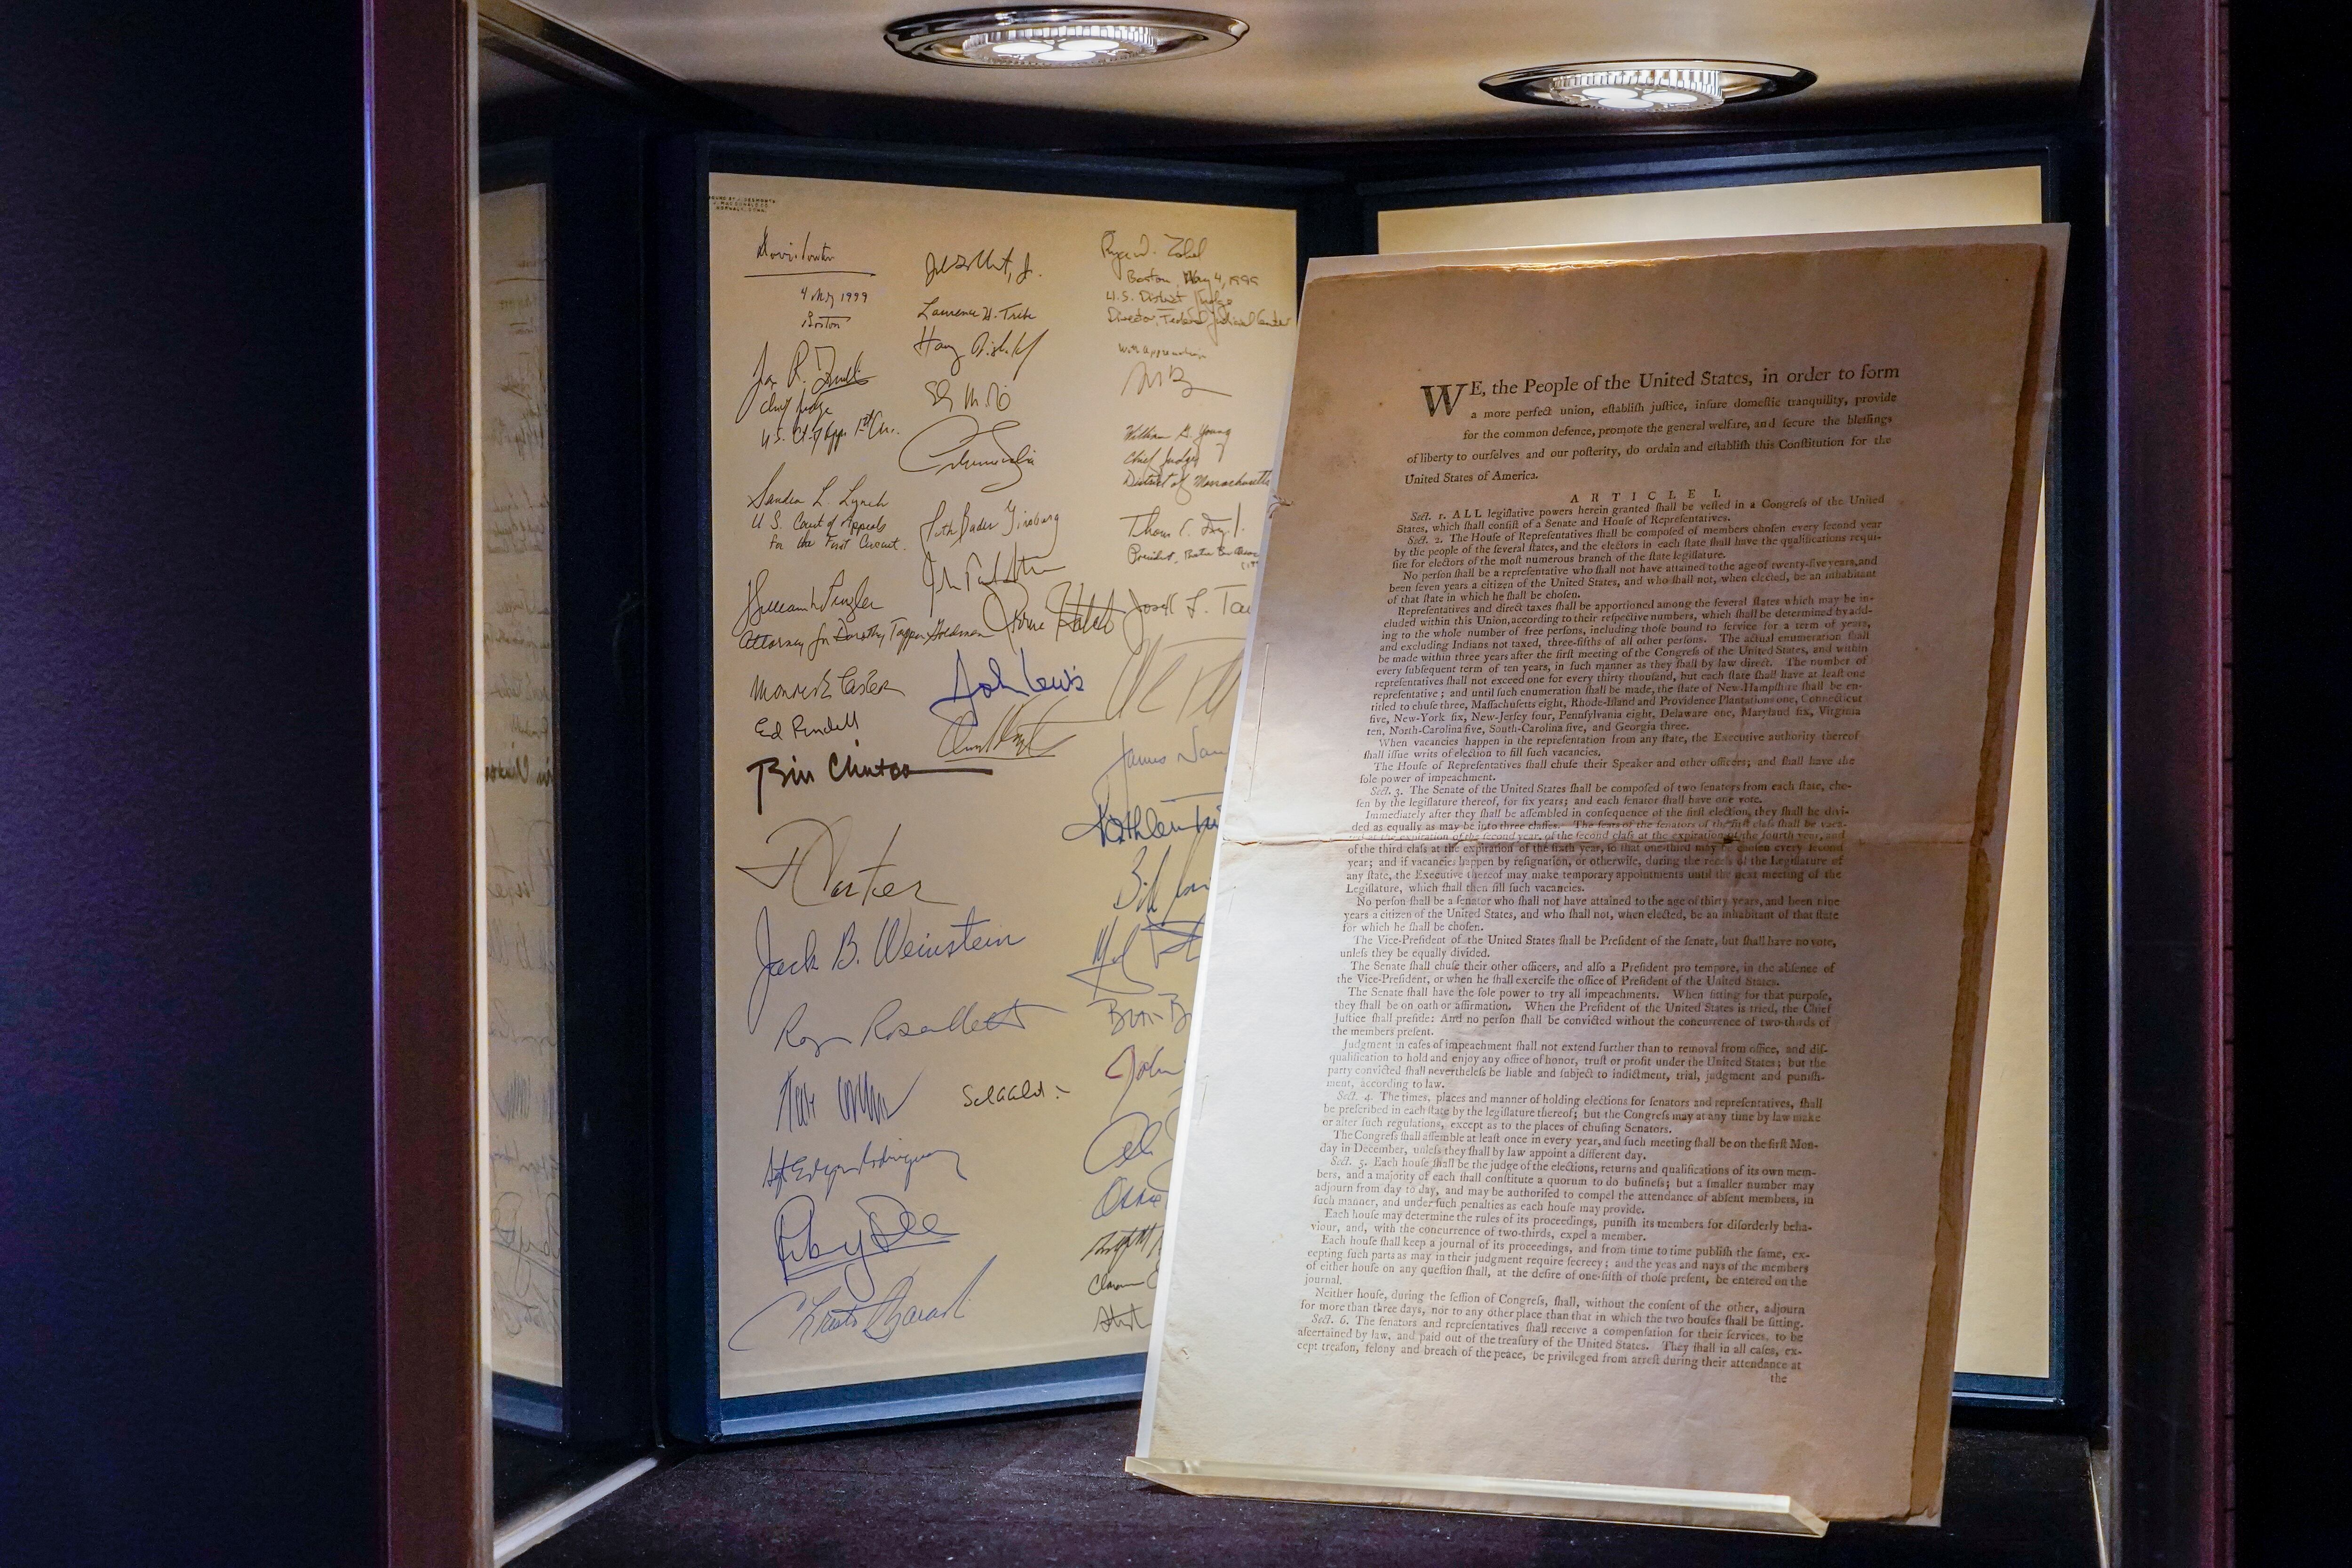 4 May 1999
Boston
Chief Judge
Sandra L. Lynch
U.S. Court of Appeals
for the First Circuit.
Attorney for Dorothy Tapper Goldman
Ed Rendell
Bill Clinton
J Carter
Jack B. Weinstein
Laurence H. Tribe
Ruth Bader Ginsburg
John Lewis
Boston, May 4, 1999
U.S. District Judge
Director, Federal Judicial Center
with appreciation
William G. Young
Chief Judge
District of Massachusetts
WE, the People of the United States, in order to form
a more perfect union, eſtabliſh juſtice, inſure domeſtic tranquility, provide
for the common defence, promote the general welfare, and ſecure the bleſſings
of liberty to ourſelves and our poſterity, do ordain and eſtabliſh this Conſtitution for the
United States of America.
ARTICLE I.
Sect. 1. ALL legiſlative powers herein granted ſhall be veſted in a Congreſs of the United
States, which ſhall conſiſt of a Senate and Houſe of Repreſentatives.
Sect. 2. The Houſe of Repreſentatives ſhall be compoſed of members choſen every ſecond year
by the people of the ſeveral ſtates, and the electors in each ſtate ſhall have the qualifications requi-
ſite for electors of the moſt numerous branch of the ſtate legiſlature.
No perſon ſhall be a repreſentative who ſhall not have attained to the age of twenty-five years, and
been ſeven years a citizen of the United States, and who ſhall not, when elected, be an inhabitant
of that ſtate in which he ſhall be choſen.
Repreſentatives and direct taxes ſhall be apportioned among the ſeveral ſtates which may be in-
cluded within this Union, according to their reſpective numbers, which ſhall be determined by add-
ing to the whole number of free perſons, including thoſe bound to ſervice for a term of years,
and excluding Indians not taxed, three-fifths of all other perſons. The actual enumeration ſhall
be made within three years after the firſt meeting of the Congreſs of the United States, and within
every ſubſequent term of ten years, in ſuch manner as they ſhall by law direct. The number of
repreſentatives ſhall not exceed one for every thirty thouſand, but each ſtate ſhall have at leaſt one
repreſentative; and until ſuch enumeration ſhall be made, the ſtate of New-Hampſhire ſhall be en-
titled to chuſe three, Maſſachuſetts eight, Rhode-Iſland and Providence Plantations one, Connecticut
five, New-York ſix, New-Jerſey four, Pennſylvania eight, Delaware one, Maryland ſix, Virginia
ten, North-Carolina five, South-Carolina five, and Georgia three.
When vacancies happen in the repreſentation from any ſtate, the Executive authority thereof
ſhall iſſue writs of election to fill ſuch vacancies.
The Houſe of Repreſentatives ſhall chuſe their Speaker and other officers; and ſhall have the
ſole power of impeachment.
Sect. 3. The Senate of the United States ſhall be compoſed of two ſenators from each ſtate, cho-
ſen by the legiſlature thereof, for ſix years; and each ſenator ſhall have one vote.
Immediately after they ſhall be aſſembled in conſequence of the firſt election, they ſhall be divi-
ded as equally as may be into three claſſes. The ſeats of the ſenators of the firſt claſs ſhall be vaca-
ted at the expiration of the ſecond year, of the ſecond claſs at the expiration of the fourth year, and
of the third claſs at the expiration of the ſixth year, ſo that one-third may be choſen every ſecond
year; and if vacancies happen by reſignation, or otherwiſe, during the receſs of the Legiſlature of
any ſtate, the Executive thereof may make temporary appointments until the next meeting of the
Legiſlature, which ſhall then fill ſuch vacancies.
No perſon ſhall be a ſenator who ſhall not have attained to the age of thirty years, and been nine
years a citizen of the United States, and who ſhall not, when elected, be an inhabitant of that ſtate
for which he ſhall be choſen.
The Vice-Preſident of the United States ſhall be Preſident of the ſenate, but ſhall have no vote,
unleſs they be equally divided.
The Senate ſhall chuſe their other officers, and alſo a Preſident pro tempore, in the abſence of
the Vice-Preſident, or when he ſhall exerciſe the office of Preſident of the United States.
The Senate ſhall have the ſole power to try all impeachments. When ſitting for that purpoſe,
they ſhall be on oath or affirmation. When the Preſident of the United States is tried, the Chief
Juſtice ſhall preſide: And no perſon ſhall be convicted without the concurrence of two-thirds of
the members preſent.
Judgment in caſes of impeachment ſhall not extend further than to removal from office, and diſ-
qualification to hold and enjoy any office of honor, truſt or profit under the United States; but the
party convicted ſhall nevertheleſs be liable and ſubject to indictment, trial, judgment and puniſh-
ment, according to law.
Sect. 4. The times, places and manner of holding elections for ſenators and repreſentatives, ſhall
be preſcribed in each ſtate by the legiſlature thereof; but the Congreſs may at any time by law make
or alter ſuch regulations, except as to the places of chuſing Senators.
The Congreſs ſhall aſſemble at leaſt once in every year, and ſuch meeting ſhall be on the firſt Mon-
day in December, unleſs they ſhall by law appoint a different day.
Sect. 5. Each houſe ſhall be the judge of the elections, returns and qualifications of its own mem-
bers, and a majority of each ſhall conſtitute a quorum to do buſineſs; but a ſmaller number may
adjourn from day to day, and may be authoriſed to compel the attendance of abſent members, in
ſuch manner, and under ſuch penalties as each houſe may provide.
Each houſe may determine the rules of its proceedings, puniſh its members for diſorderly beha-
viour, and, with the concurrence of two-thirds, expel a member.
Each houſe ſhall keep a journal of its proceedings, and from time to time publiſh the ſame, ex-
cepting ſuch parts as may in their judgment require ſecrecy; and the yeas and nays of the members
of either houſe on any queſtion ſhall, at the deſire of one-fifth of thoſe preſent, be entered on the
journal.
Neither houſe, during the ſeſſion of Congreſs, ſhall, without the conſent of the other, adjourn
for more than three days, nor to any other place than that in which the two houſes ſhall be ſitting.
Sect. 6. The ſenators and repreſentatives ſhall receive a compenſation for their ſervices, to be
aſcertained by law, and paid out of the treaſury of the United States. They ſhall in all caſes, ex-
cept treaſon, felony and breach of the peace, be privileged from arreſt during their attendance at
the